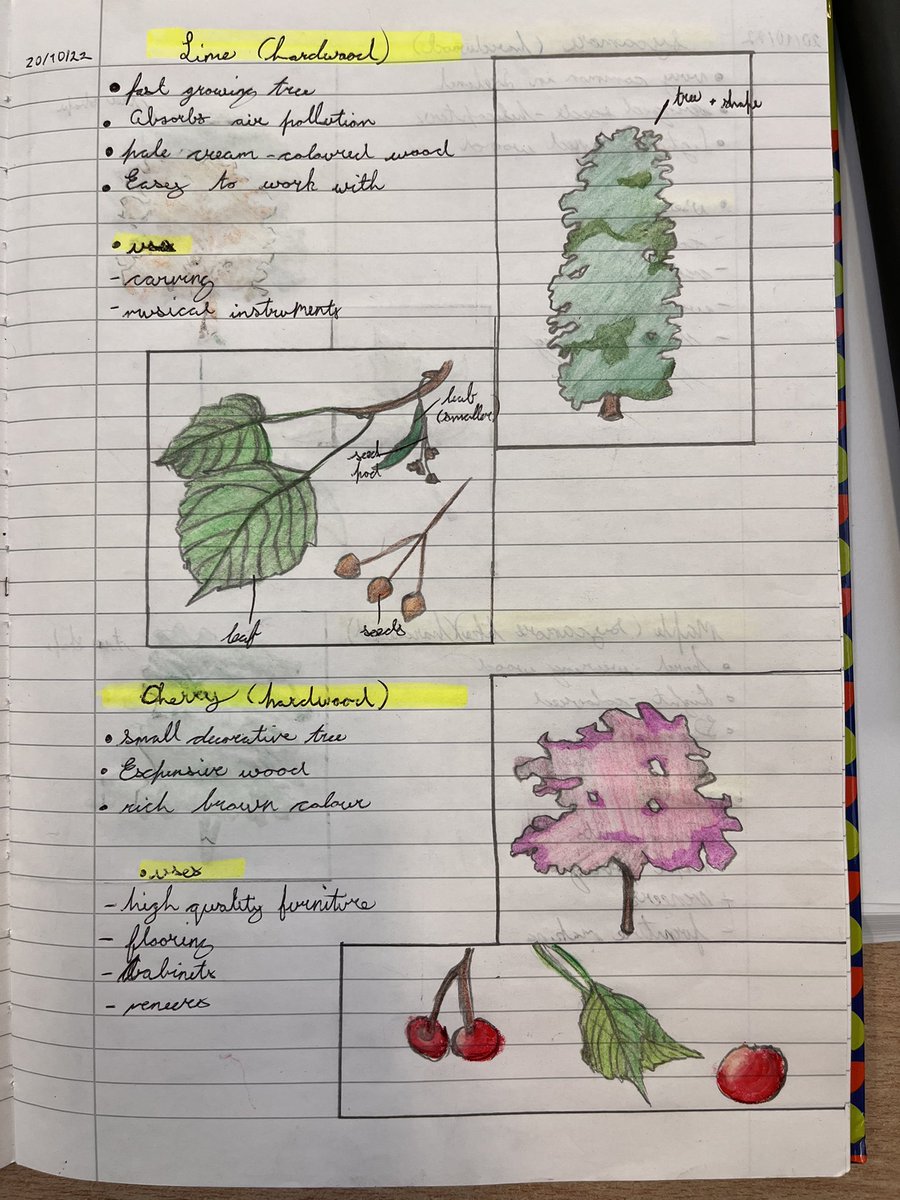 20/10/22
Lime (hardwood)
• fast growing tree
• Absorbs air pollution
• pale cream-coloured wood
• Easy to work with
• uses
- carving
- musical instruments
tree + shape
leaf
(smaller)
seed
pod
leaf
seeds
Cherry (hardwood)
• small decorative tree
• Expensive wood
• rich brown colour
• uses
- high quality furniture
- flooring
- Cabinets
- veneers